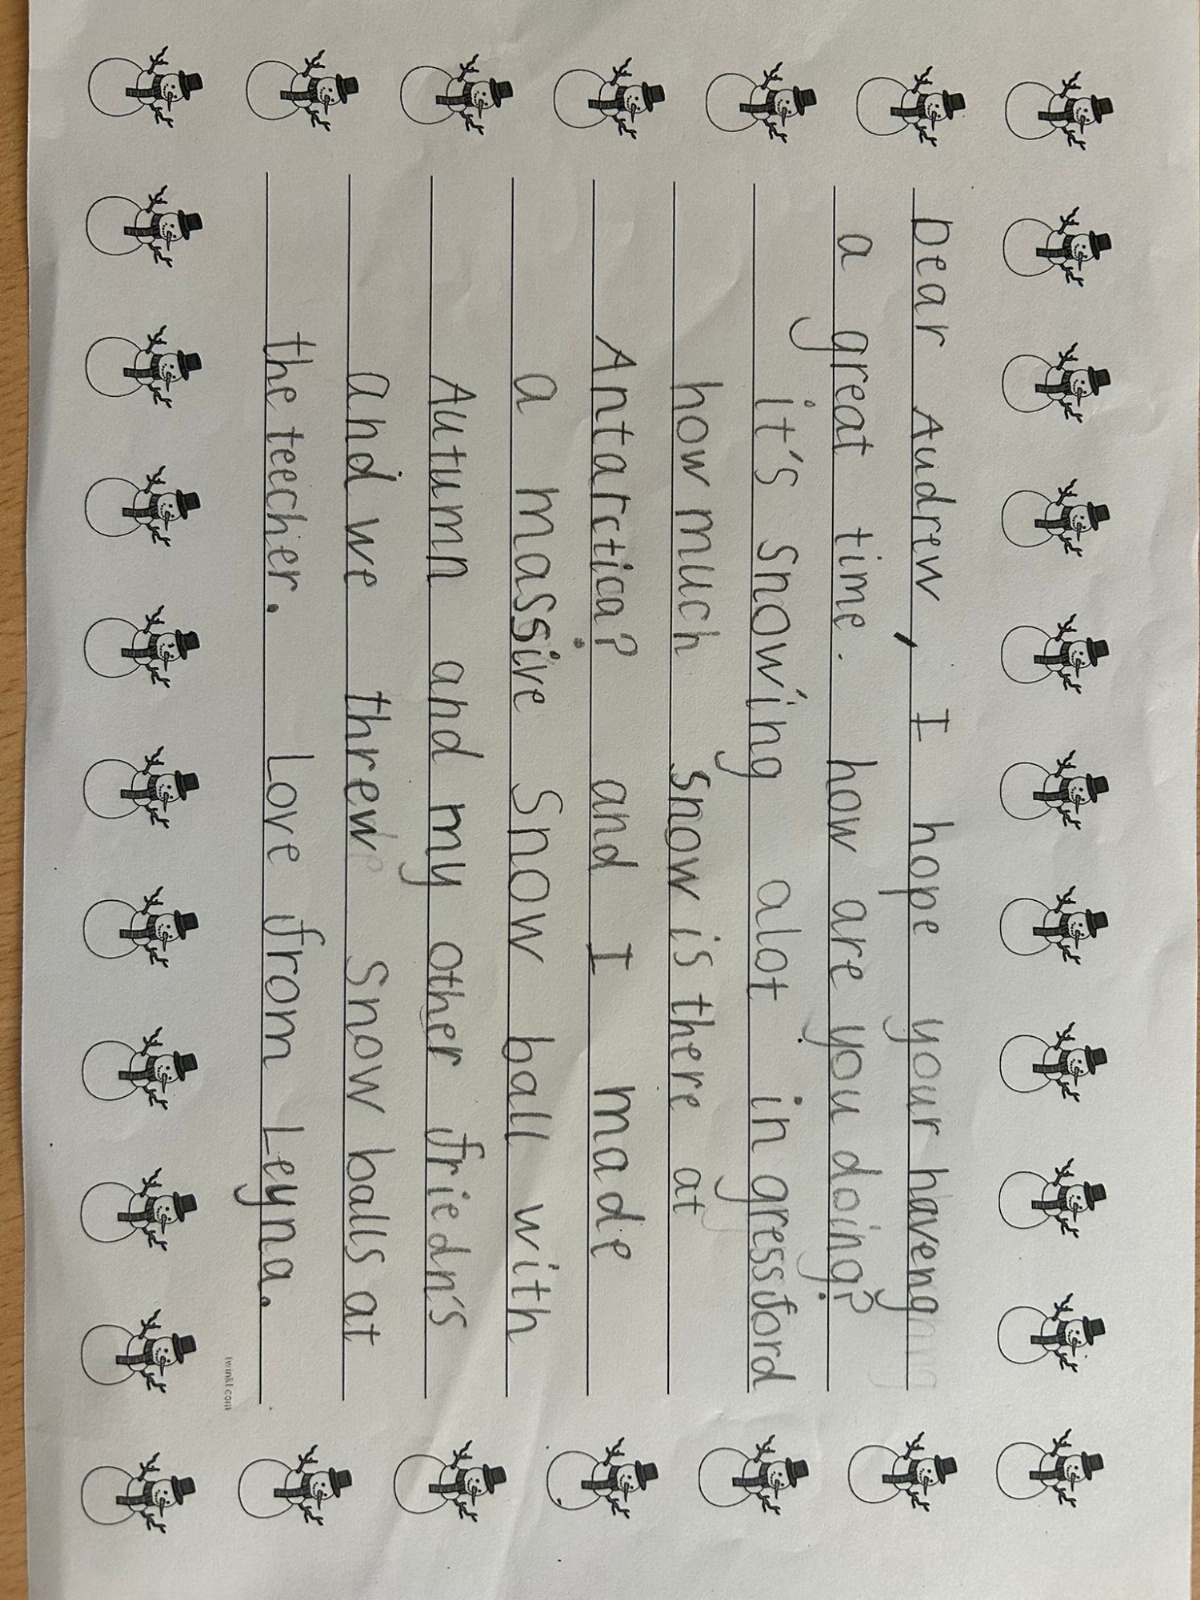 Dear Audrew, I hope your haveng
a great time. how are you doing?
it's snowing alot in gressford
how much snow is there at
Antarctica? and I made
a massive Snow ball with
Autumn and my other friedn's
and we threw Snow balls at
the teecher. Love from Leyna.
twinkl.com